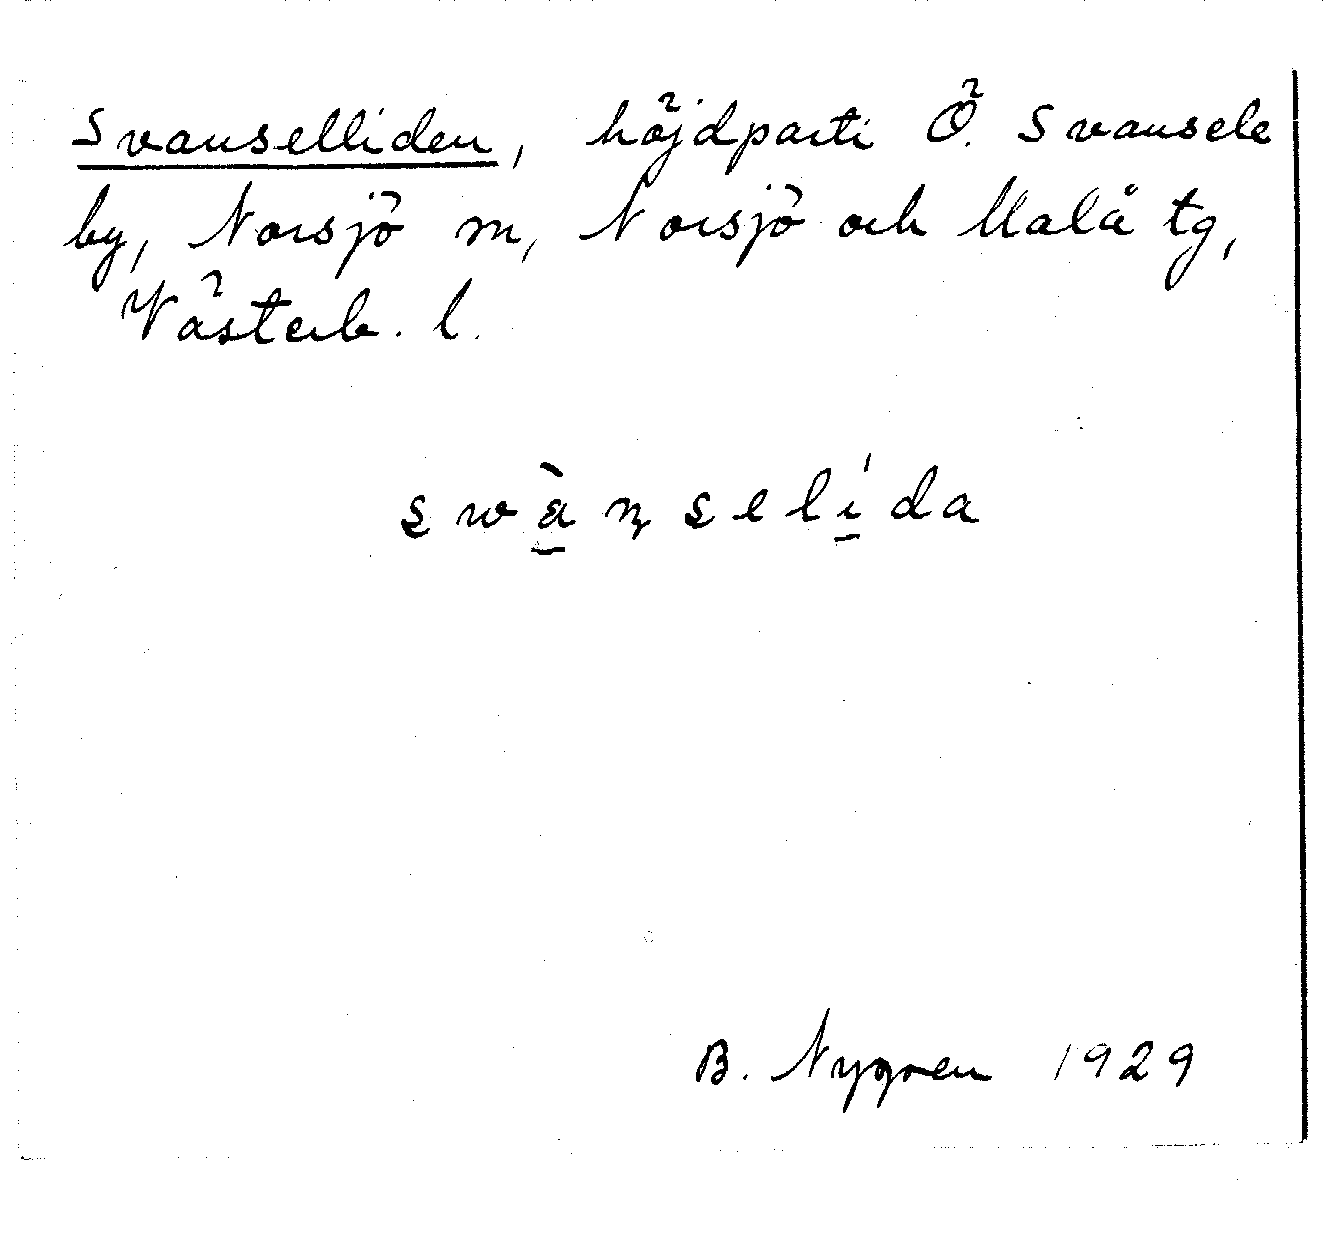 Svanselliden, höjdparti Ö. Svansele
by, Norsjö sn, Norsjö och Malå tg,
Västerb. l.
swànselída
B. Nygren 1929